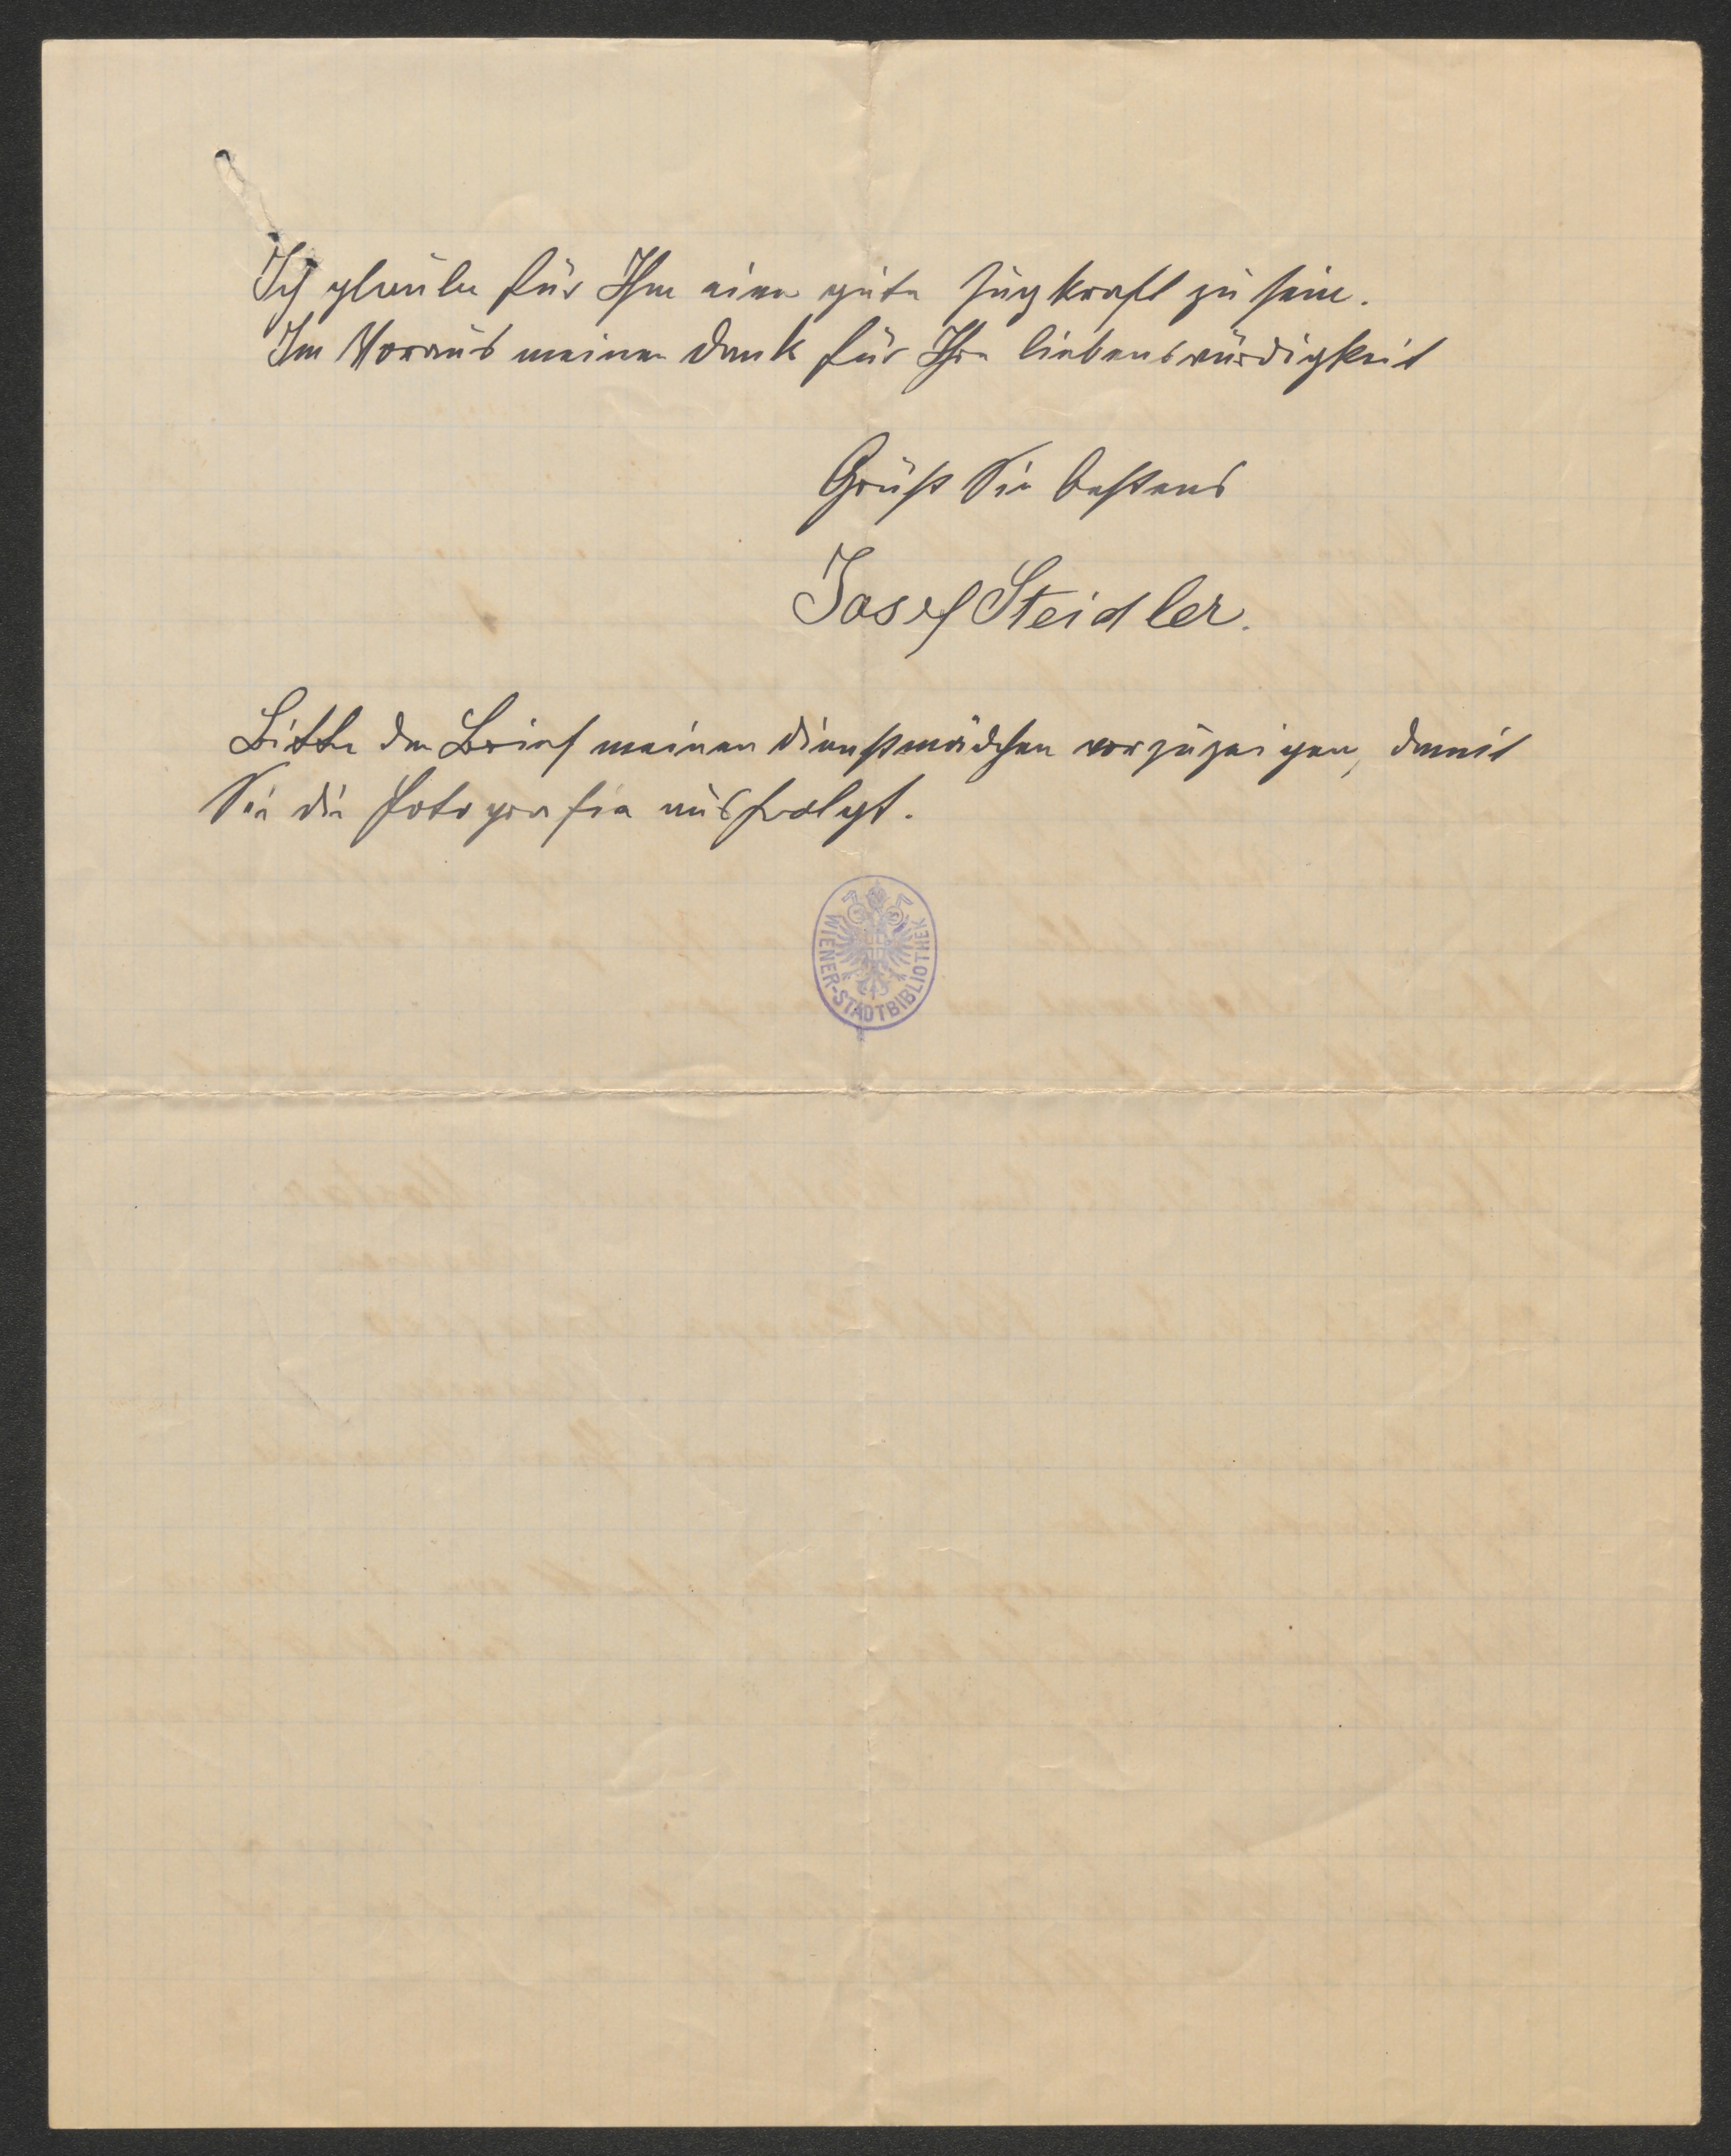 Ich glaube für Ihn eine gute Zugkraft zu sein.
Im Voraus meinen Dank für Ihre liebenswürdigkeit
Grüßt Sie bestens
Josef Steidler.
Bitte den Brief meinen Dienstmädchen vorzuzeigen, damit
Sie die Fotografie ausfolgt.
WIENER-STADTBIBLIOTHEK